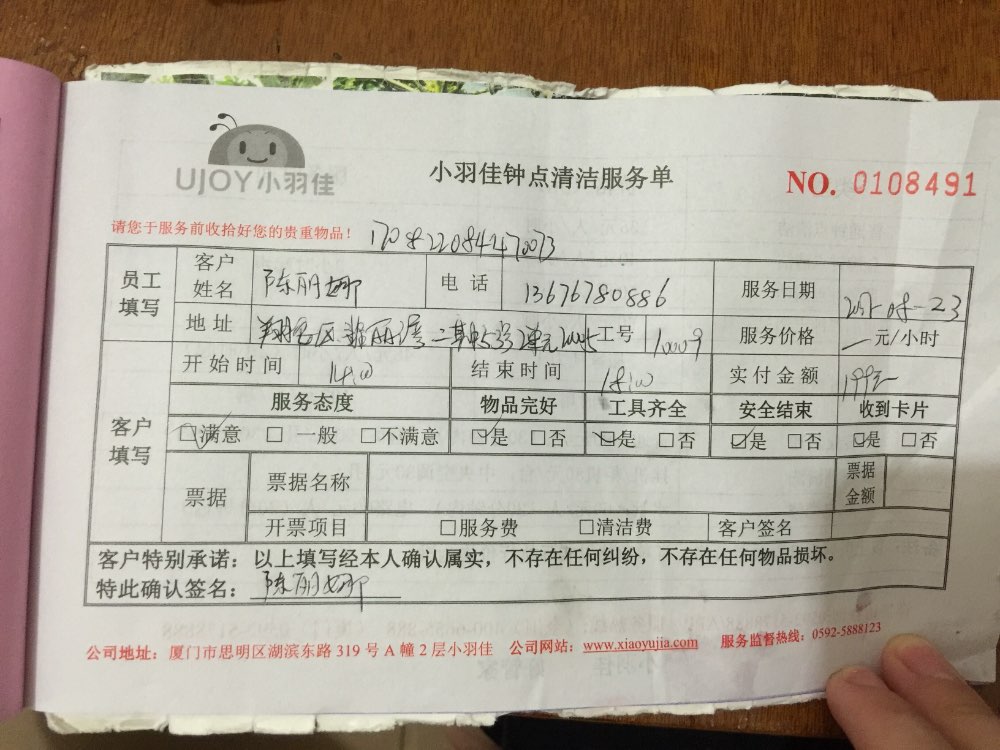 UJOY小羽佳
小羽佳钟点清洁服务单
NO. 0108491
请您于服务前收拾好您的贵重物品！
员工填写 客户姓名 陈丽娜 电话 13676780886 服务日期
地址 工号 10009 服务价格 元/小时
客户填写 开始时间 14:00 结束时间 18:00 实付金额 199元
服务态度 物品完好 工具齐全 安全结束 收到卡片
☑满意 □一般 □不满意 ☑是 □否 ☑是 □否 ☑是 □否 ☑是 □否
票据 票据名称 票据金额
开票项目 □服务费 □清洁费 客户签名
客户特别承诺：以上填写经本人确认属实，不存在任何纠纷，不存在任何物品损坏。
特此确认签名：陈丽娜
公司地址：厦门市思明区湖滨东路 319 号 A 幢 2 层小羽佳 公司网站：www.xiaoyujia.com 服务监督热线：0592-5888123